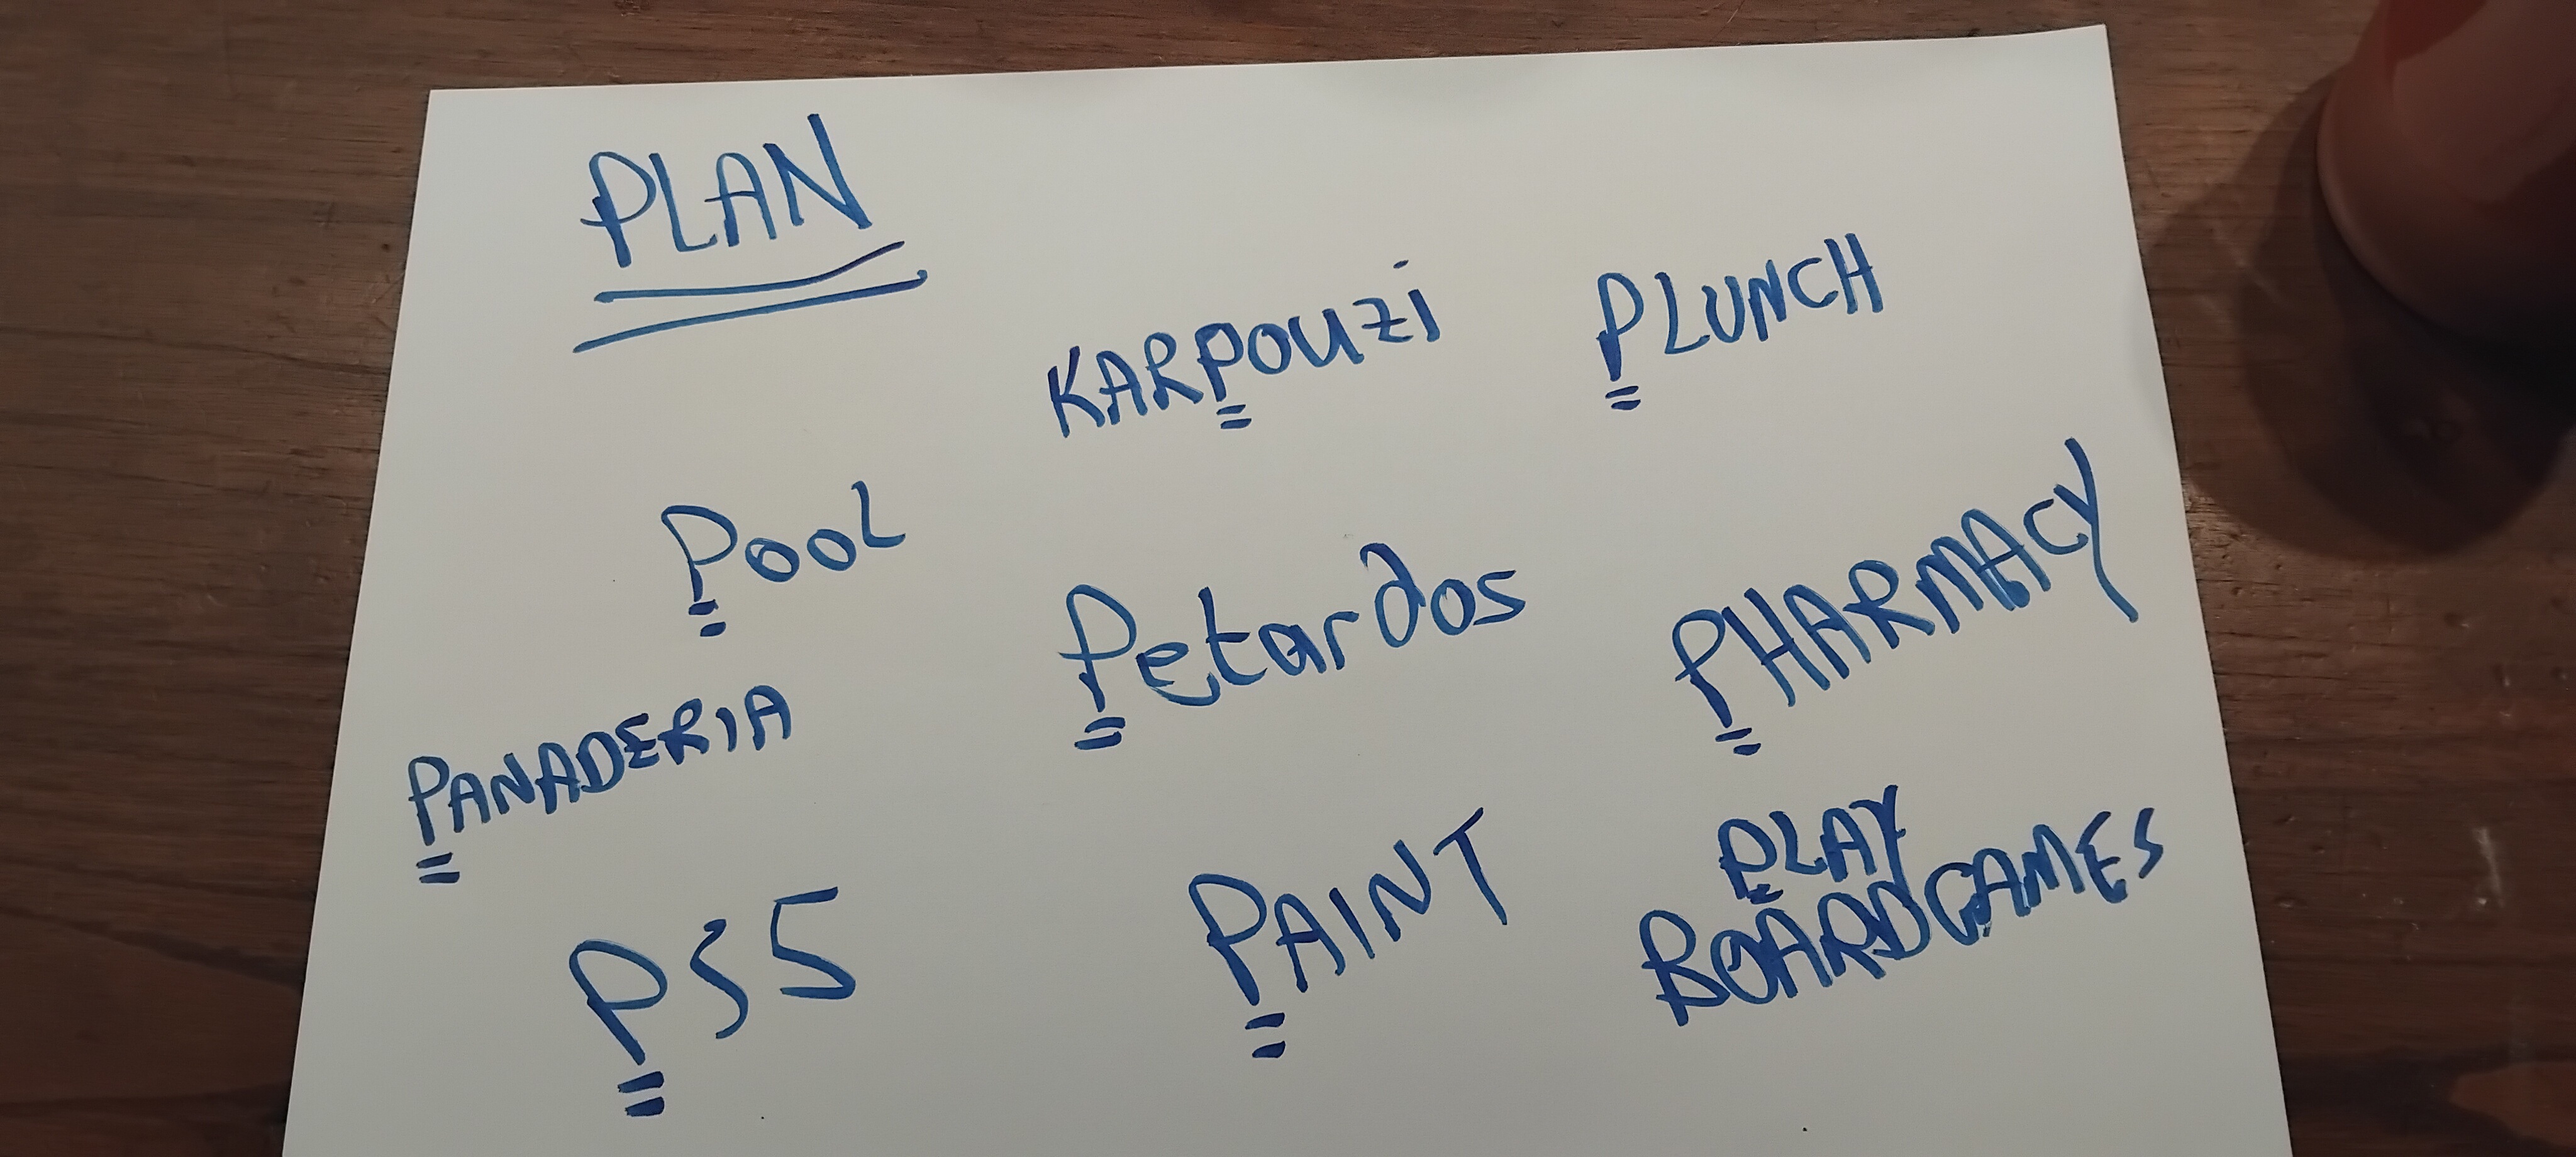 PLAN
KARPOUZI
PLUNCH
POOL
Petardos
PHARMACY
PANADERIA
PS5
PAINT
PLAY
BOARDGAMES